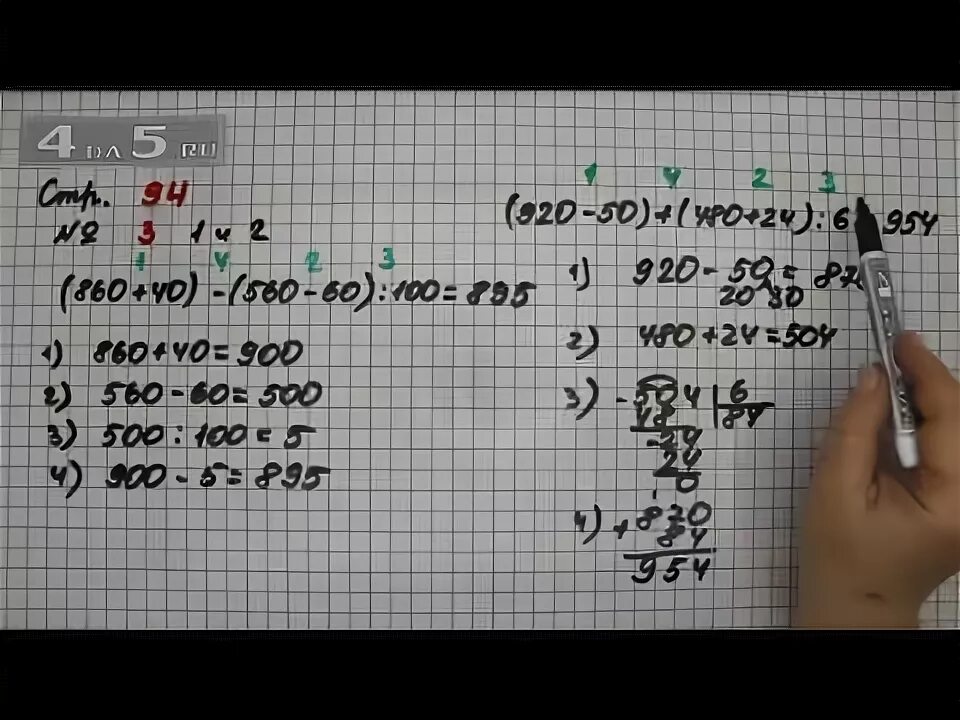 4 ДА 5 .RU
Стр. 94
№ 3 1 и 2
1 4 2 3
(860+40) - (560-60) : 100 = 895
1) 860+40=900
2) 560-60=500
3) 500 : 100 = 5
4) 900 - 5 = 895
1 4 2 3
(920-50)+(480+24) : 6 954
1) 920 - 50 = 87
20 30
2) 480+24=504
3) - 504 6
48 84
- 24
24
0
4) + 870
84
954